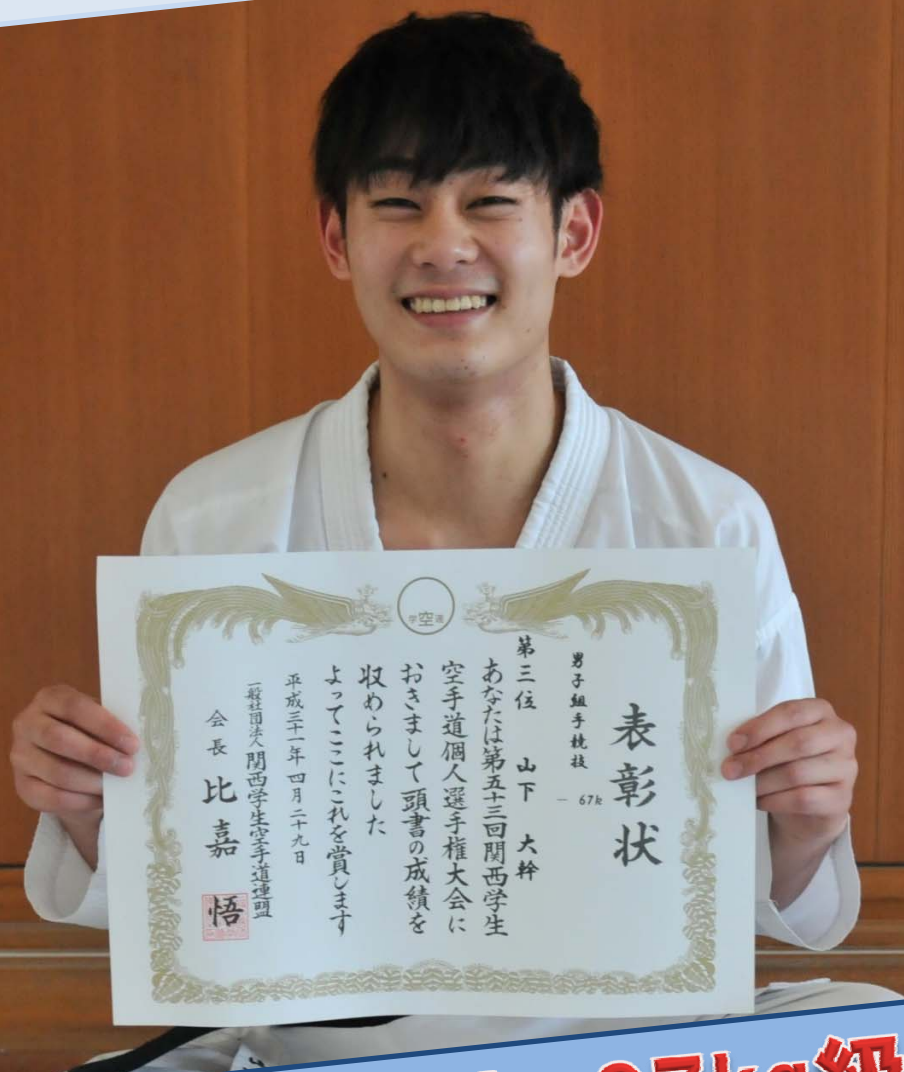 学空連
表彰状
男子組手競技
- 67k
第三位 山下 大幹
あなたは第五十三回関西学生
空手道個人選手権大会に
おきまして頭書の成績を
収められました
よってここにこれを賞します
平成三十一年四月二十九日
一般社団法人 関西学生空手道連盟
会長 比嘉 悟
67kg級